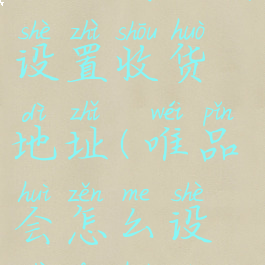 shè zhì shōu huò
设置收货
dì zhǐ wéi pǐn
地址(唯品
huì zěn me shè
会怎么设